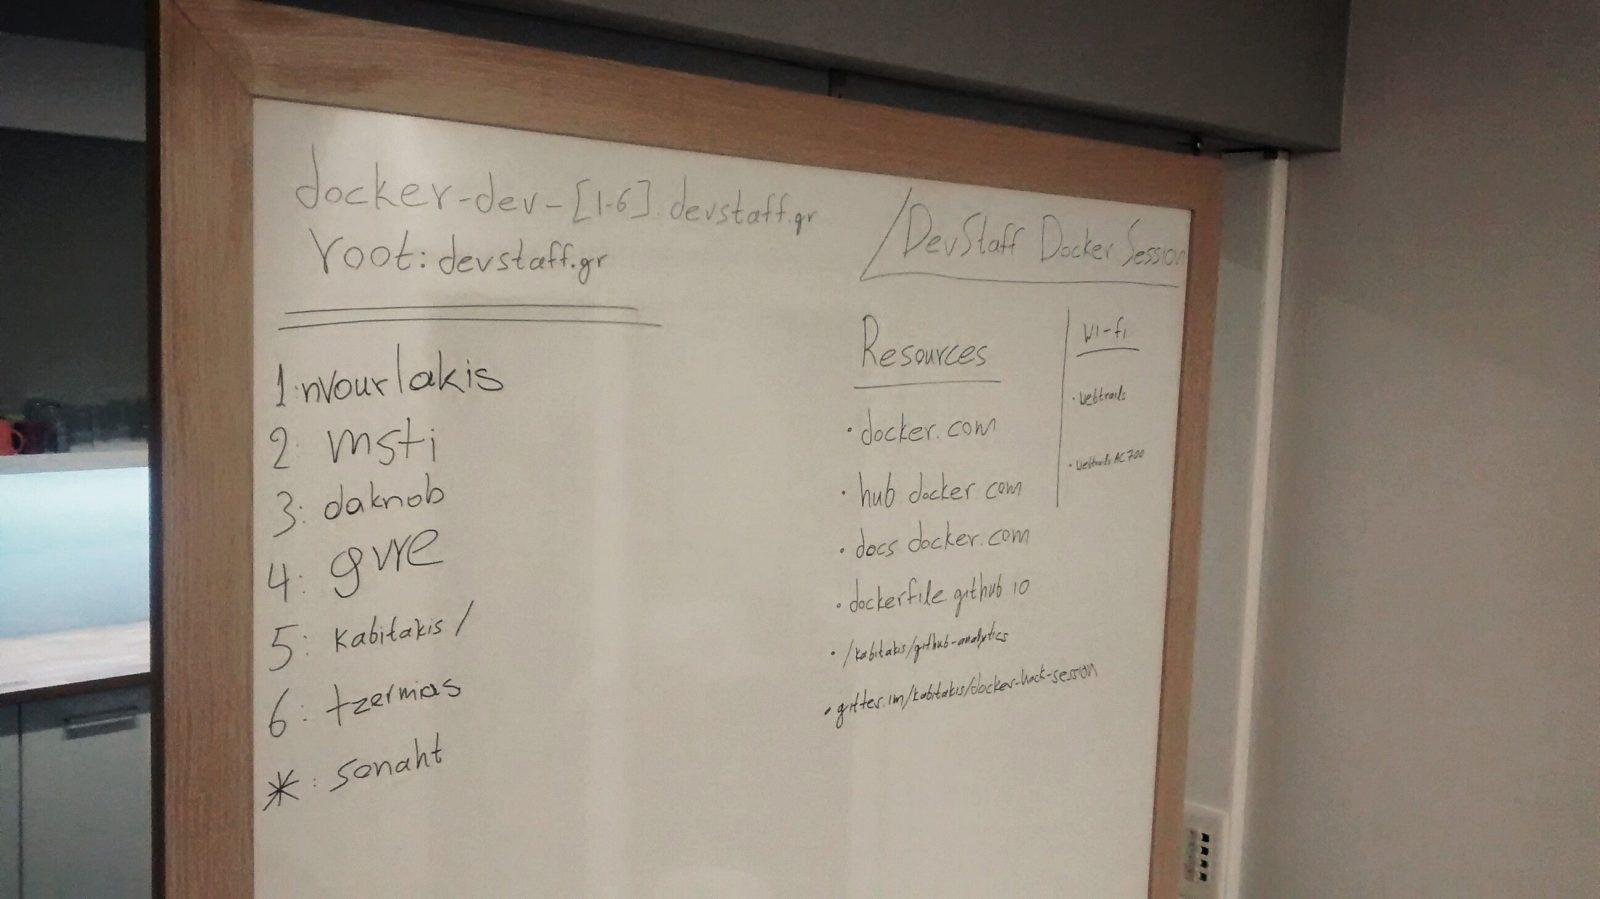 docker-dev-[1-6].devstaff.gr
root: devstaff.gr
1: nvourlakis
2: msti
3: daknob
4: gvre
5: kabitakis /
6: tzermias
*: sonaht
/DevStaff Docker Session
Resources
· docker.com
· hub docker com
· docs docker.com
· dockerfile github io
· /kabitakis/github-analytics
· gitter.im/kabitakis/docker-hack-session
Wi-fi
· webtrails
· webtrails AC700